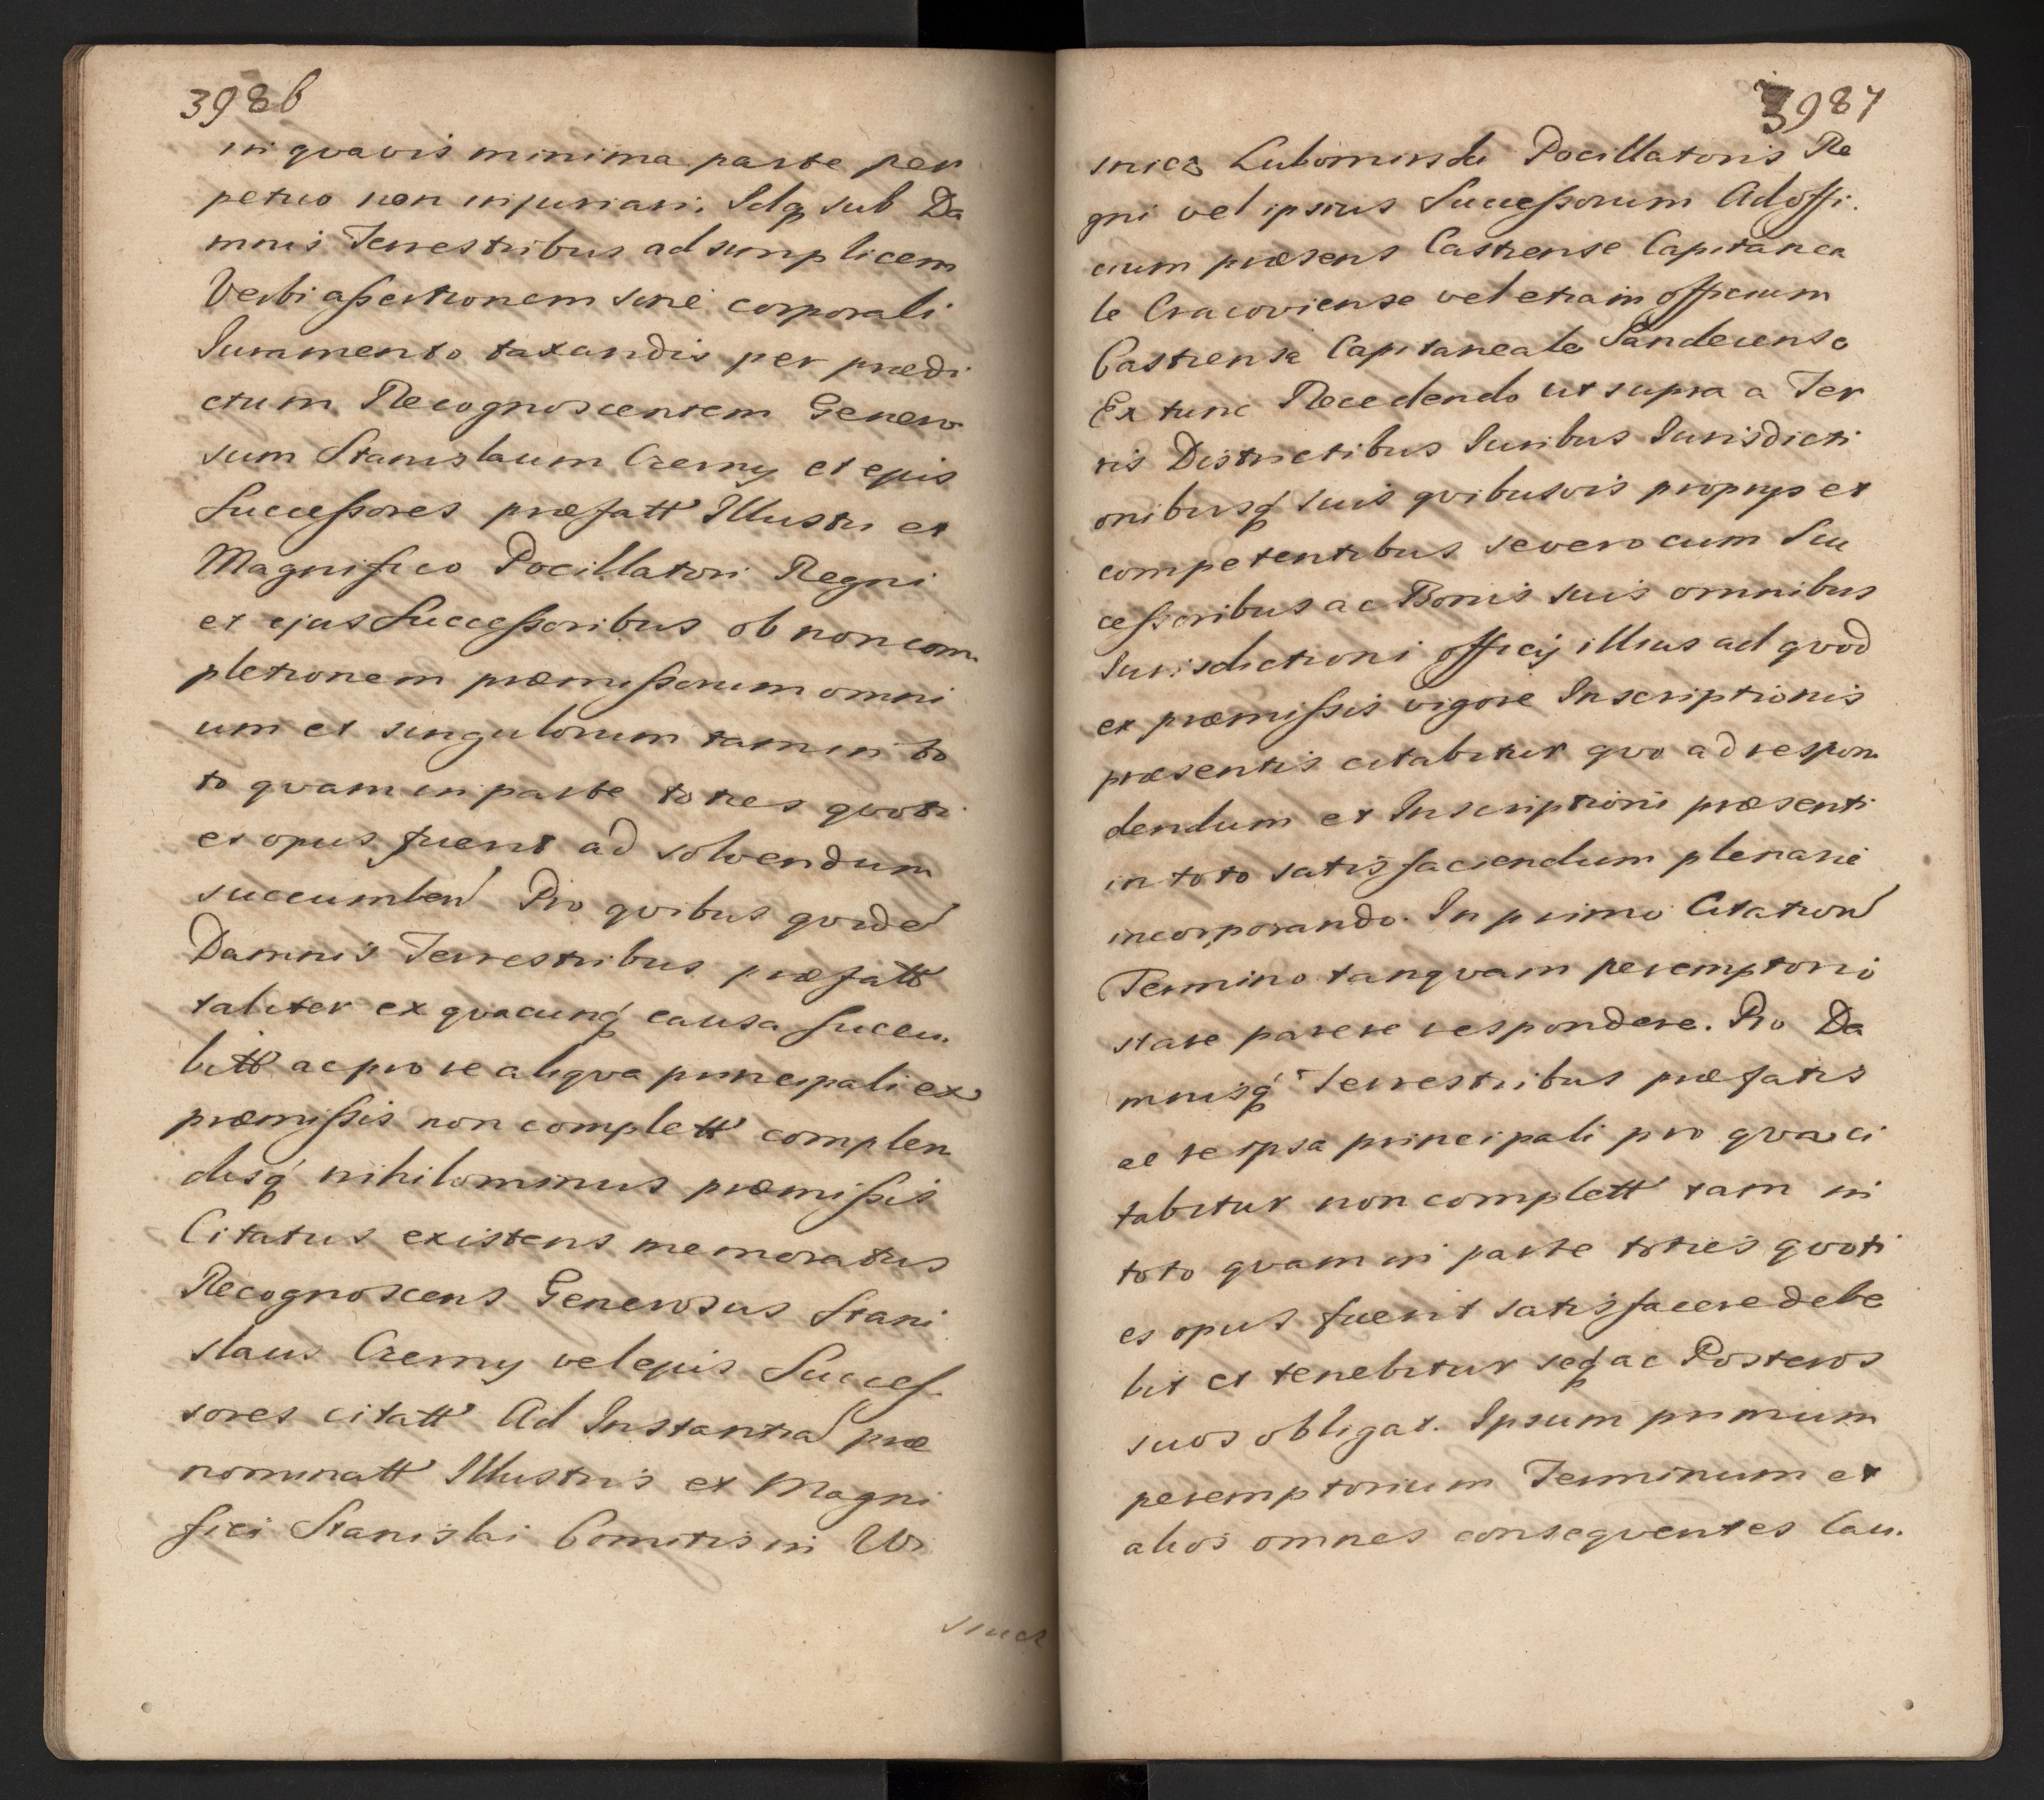 3986
in qvavis minima parte per
petuo non injuriari. Idq sub Da
mnis Terrestribus ad simplicem
Verbi aßertionem sine corporali
Iuramento taxandis per prædi
ctum Recognoscentem Genero
sum Stanislaum Czerny et ejus
Succeßores præfatt Illustri et
Magnifico Pocillatori Regni
et ejus Succeßoribus ob non com
pletionem præmißorum omni
um et singulorum tam in to
to qvam in parte toties qvoti
es opus fuerit ad solvendum
succumben Pro qvibus qvide
Damnis Terrestribus præfatt
taliter ex qvacunq causa succu
bitt ac pro re aliqva principali ex
præmißis non complett complen
disq nihilominus præmißis
Citatus existens memoratus
Recognoscens Generosus Stani
slaus Czerny vel ejus Succes
sores citatt Ad Instantia præ
nominatt Illustris et Magni
fici Stanislai Comitis in Wi
snicz
3987
snicz Lubomirski Pocillatoris Re
gni vel ipsius Succeßorum Ad offi.
cium præsens Castrense Capitanea
le Cracoviense vel etiam officium
Castrense Capitaneale Sandecense
Ex tunc Recedendo ut supra a Ter
ris Districtibus Iuribus Iurisdicti
onibusq suis qvibusvis proprijs et
competentibus se vero cum Suc
ceßoribus ac Bonis suis omnibus
Iurisdictioni officij illius ad qvod
ex præmißis vigore Inscriptionis
præsentis citabitur qvo ad respon
dendum et Inscriptioni præsenti
in toto satisfaciendum plenarie
incorporando. In primo Citation
Termino tanqvam peremptorio
stare parere respondere. Pro Da
mnisq Terrestribus præfatis
ac re ipsa principali pro qva ci
tabitur non complett tam in
toto qvam in parte toties qvoti
es opus fuerit satisfacere debe
bit et tenebitur seq ac Posteros
suos obligat. Ipsum primum
peremptorium Terminum et
alios omnes conseqventes Cau.